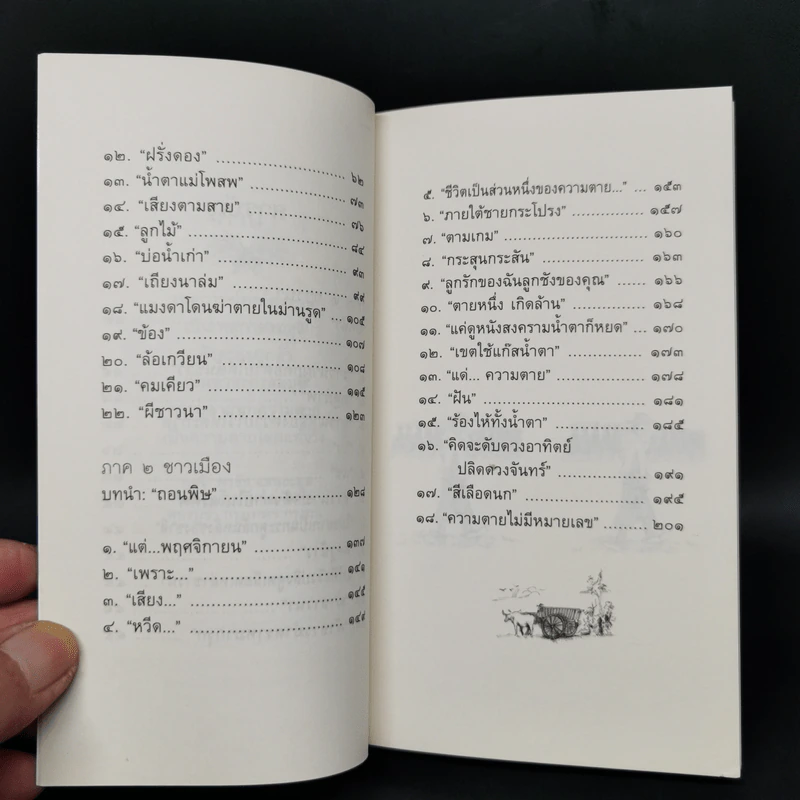 ๑๒. “ฝรั่งดอง” ................... ๖๒
๑๓. “น้ำตาแม่โพสพ” ............... ๗๓
๑๔. “เสียงตามสาย” ................ ๗๖
๑๕. “ลูกไม้” ........................ ๘๔
๑๖. “บ่อน้ำเก่า” .................... ๙๓
๑๗. “เถียงนาล่ม” ................... ๙๙
๑๘. “แมงดาโดนฆ่าตายในม่านรูด” ... ๑๐๕
๑๙. “ข้อง” .......................... ๑๐๗
๒๐. “ล้อเกวียน” .................... ๑๐๘
๒๑. “คมเคียว” ...................... ๑๑๕
๒๒. “ผีชาวนา” ..................... ๑๒๓
ภาค ๒ ชาวเมือง
บทนำ: “ถอนพิษ” .................. ๑๒๘
๑. “แต่...พฤศจิกายน” .............. ๑๓๗
๒. “เพราะ...” ....................... ๑๔๑
๓. “เสียง...” ........................ ๑๔๕
๔. “หวีด...” ......................... ๑๔๙
๕. “ชีวิตเป็นส่วนหนึ่งของความตาย...” ... ๑๕๓
๖. “ภายใต้ชายกระโปรง” ............ ๑๕๗
๗. “ตามเกม” ....................... ๑๖๐
๘. “กระสุนกระสัน” ................. ๑๖๓
๙. “ลูกรักของฉันลูกชังของคุณ” ...... ๑๖๖
๑๐. “ตายหนึ่ง เกิดล้าน” ............. ๑๖๘
๑๑. “แค่ดูหนังสงครามน้ำตาก็หยด” ... ๑๗๐
๑๒. “เขตใช้แก๊สน้ำตา” .............. ๑๗๓
๑๓. “แด่... ความตาย” ............... ๑๗๘
๑๔. “ฝัน” ........................... ๑๘๑
๑๕. “ร้องไห้ทั้งน้ำตา” ................ ๑๘๕
๑๖. “คิดจะดับดวงอาทิตย์
ปลิดดวงจันทร์” .................... ๑๙๑
๑๗. “สีเลือดนก” .................... ๑๙๕
๑๘. “ความตายไม่มีหมายเลข” ........ ๒๐๑